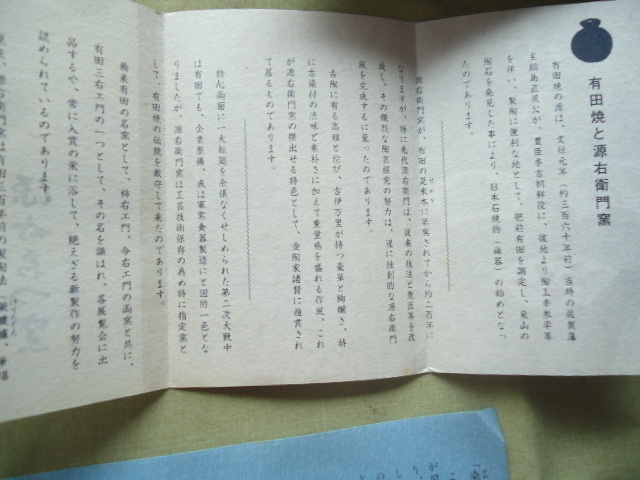 有田焼と源右衛門窯
有田焼の源は、文禄元年（約三百六十年前）当時の佐賀藩
主鍋島直茂公が、豊臣秀吉朝鮮役に、彼地より陶工李参平等
を伴い、製陶に便利な地として、肥前有田を調定し、泉山の
陶石を発見した事により、日本石焼物（磁器）の始めとなっ
たのであります。
源右衛門窯が、有田の足来木に築窯されてから約二百年に
なりますが、特に先代源右衛門は、従来の技法と意匠等を改
良し、その熾烈な陶芸探究の努力は、遂に独創的な源右衛門
風を完成するに至ったのであります。
古陶に有る高雅と侘び、古伊万里が持つ豪華と絢爛さ、特
に古染付の渋味と素朴さに加えて重量感を盛れる作風、これ
が源右衛門窯の傑出せる特色として、愛陶家諸賢に推賞され
て居るものであります。
物心両面に一大転廻を余儀なくせしめられた第二次大戦中
は有田でも、企業整備、或は軍需食器製造にと国防一色とな
りましたが、源右衛門窯は工芸技術保存の為め特に指定窯と
して、有田焼の伝統を敢守して来たのであります。
爾来有田の名窯として、柿右エ門、今右エ門の両窯と共に、
有田三右エ門の一つとして、その名を謳はれ、各展覧会に出
品するや、常に入賞の栄に浴して、絶えざる新製作の努力を
認められているのであります。
源右衛門窯は有田三百年前の製陶法